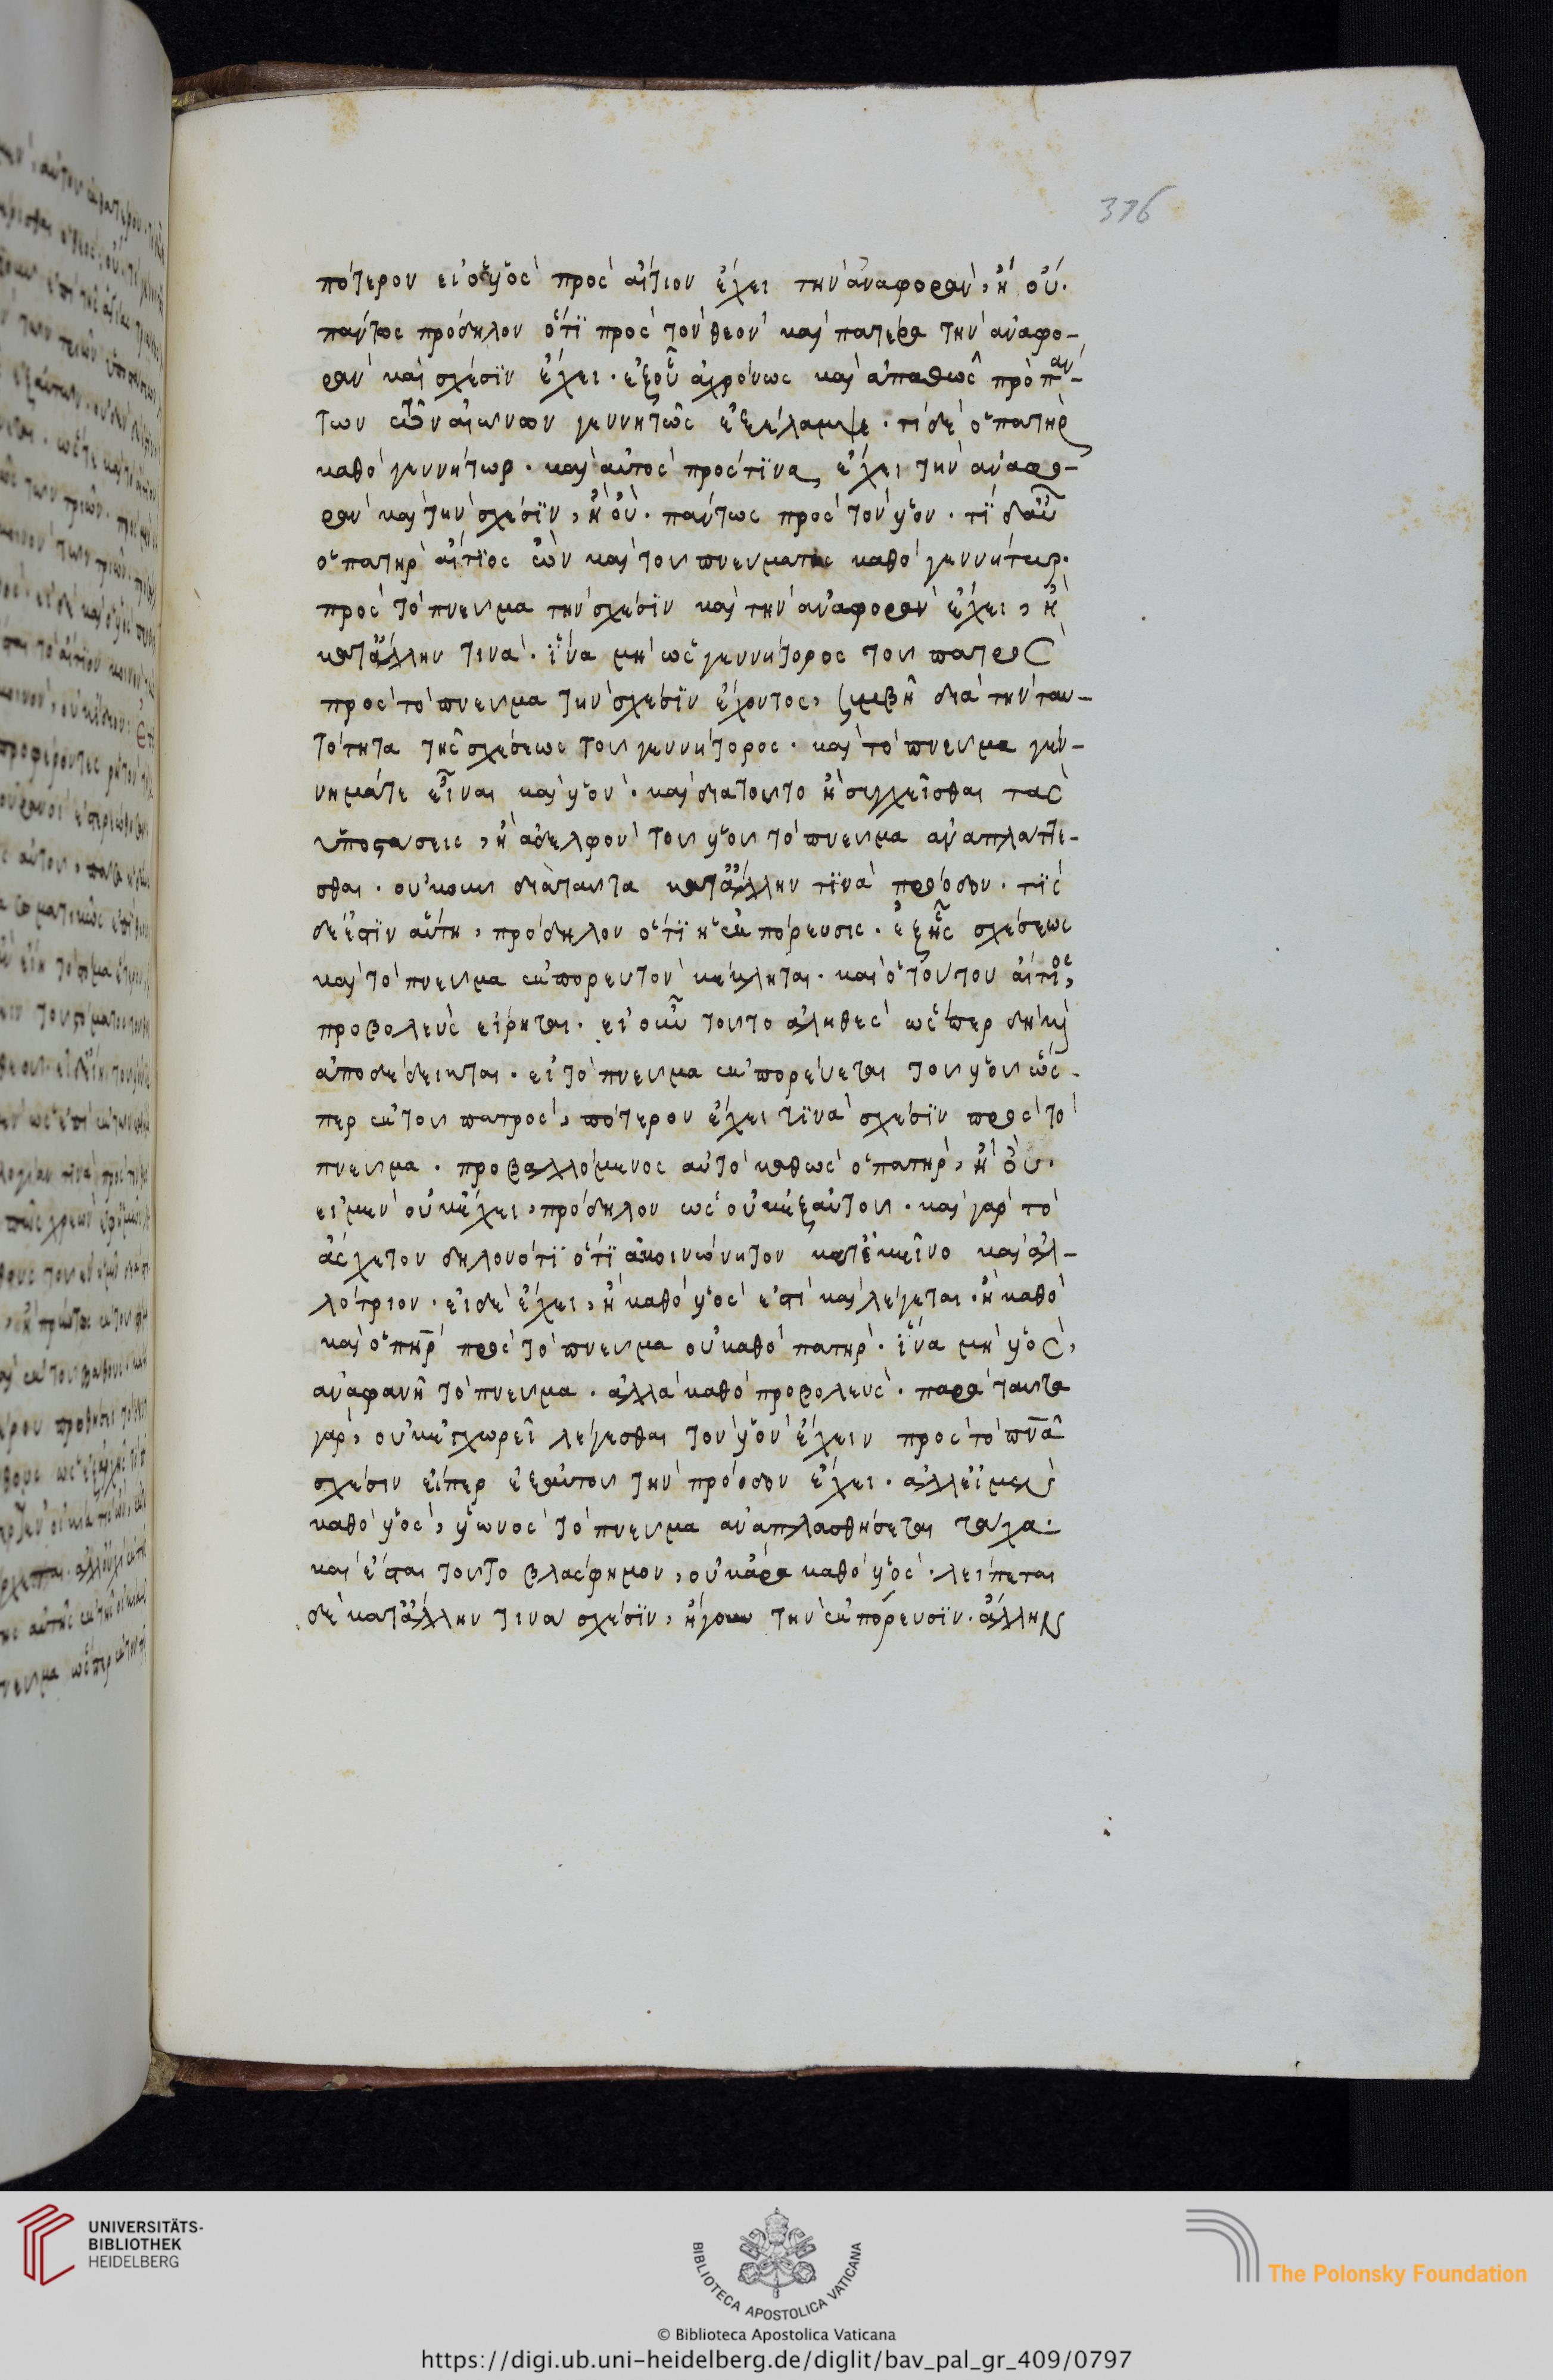 376
πότερον εἰ ὁ υἱὸς πρὸς αἴτιον ἔχει τὴν ἀναφορὰν, ἢ οὔ.
πάντως πρόδηλον ὅτι πρὸς τὸν θεὸν καὶ πατέρα τὴν ἀναφο-
ρὰν καὶ σχέσιν ἔχει. ἐξ οὗ ἀχρόνως καὶ ἀπαθῶς πρὸ πάν-
των τῶν αἰώνων γεννητῶς ἐξέλαμψε. τί δὲ ὁ πατὴρ
καθὸ γεννήτωρ. καὶ αὐτὸς πρός τινα ἔχει τὴν ἀναφο-
ρὰν καὶ τὴν σχέσιν, ἢ οὔ. πάντως πρὸς τὸν υἱόν. τί δ' αὖ
ὁ πατὴρ αἴτιος ὢν καὶ του πνευματος καθὸ γεννήτωρ.
πρὸς τὸ πνευμα τὴν σχέσιν καὶ τὴν ἀναφορὰν ἔχει, ἢ
κατ' ἄλλην τινά. ἵνα μὴ ὡς γεννήτορος του πατρὸς
πρὸς τὸ πνευμα τὴν σχέσιν ἔχοντος, συμβῆ διὰ τὴν ταυ-
τότητα τῆς σχέσεως του γεννήτορος. καὶ τὸ πνευμα γέν-
νημά τε εἶναι καὶ υἱόν. καὶ δια τουτο ἢ συγχεῖσθαι τὰς
ὑποστάσεις, ἢ ἀδελφὸν του υἱου τὸ πνευμα ἀναπλάττε-
σθαι. οὐκουν διὰ ταυτα κατ' ἄλλην τινὰ πρόοδον. τίς
δέ ἐστιν αὕτη, πρόδηλον ὅτι ἡ ἐκπόρευσις. ἐξ ἧς σχέσεως
καὶ τὸ πνευμα ἐκπορευτὸν κέκληται. καὶ ὁ τούτου αἴτιος,
προβολεὺς εἴρηται. εἰ οὖν τουτο ἀληθὲς ὥσπερ δὴ καὶ
ἀποδέδεικται. εἰ τὸ πνευμα ἐκπορεύεται του υἱου ὥσ-
περ ἐκ του πατρός, πότερον ἔχει τινὰ σχέσιν πρὸς τὸ
πνευμα. προβαλλόμενος αὐτὸ καθὼς ὁ πατὴρ, ἢ οὔ.
εἰ μὲν οὐκ ἔχει, πρόδηλον ὡς οὐκ ἐξ αὐτου. καὶ γὰρ τὸ
ἄσχετον δηλονότι ὅτι ἀκοινώνητον κατ' ἐκεῖνο καὶ ἀλ-
λότριον. εἰ δὲ ἔχει, ἢ καθὸ υἱὸς ἐστὶ καὶ λέγεται. ἢ καθὸ
καὶ ὁ πηρ πρὸς τὸ πνευμα οὐ καθὸ πατήρ. ἵνα μὴ υἱὸς,
ἀναφανῆ τὸ πνευμα. ἀλλὰ καθὸ προβολεύς. παρὰ ταυτα
γὰρ, οὐκ ἐγχωρεῖ λέγεσθαι τὸν υἱὸν ἔχειν πρὸς τὸ πνα
σχέσιν εἴπερ ἐξ αὐτου τὴν πρόοδον ἔχει. ἀλλ' εἰ μὲν
καθὸ υἱὸς, υἱωνὸς τὸ πνευμα ἀναπλασθήσεται τάχα.
καὶ ἔσται τουτο βλάσφημον, οὐκ ἄρα καθὸ υἱός. λείπεται
δὲ κατ' ἄλλην τινα σχέσιν, ἤγουν τὴν ἐκπόρευσιν. ἄλλης
UNIVERSITÄTS-
BIBLIOTHEK
HEIDELBERG
BIBLIOTECA APOSTOLICA VATICANA
The Polonsky Foundation
© Biblioteca Apostolica Vaticana
https://digi.ub.uni-heidelberg.de/diglit/bav_pal_gr_409/0797